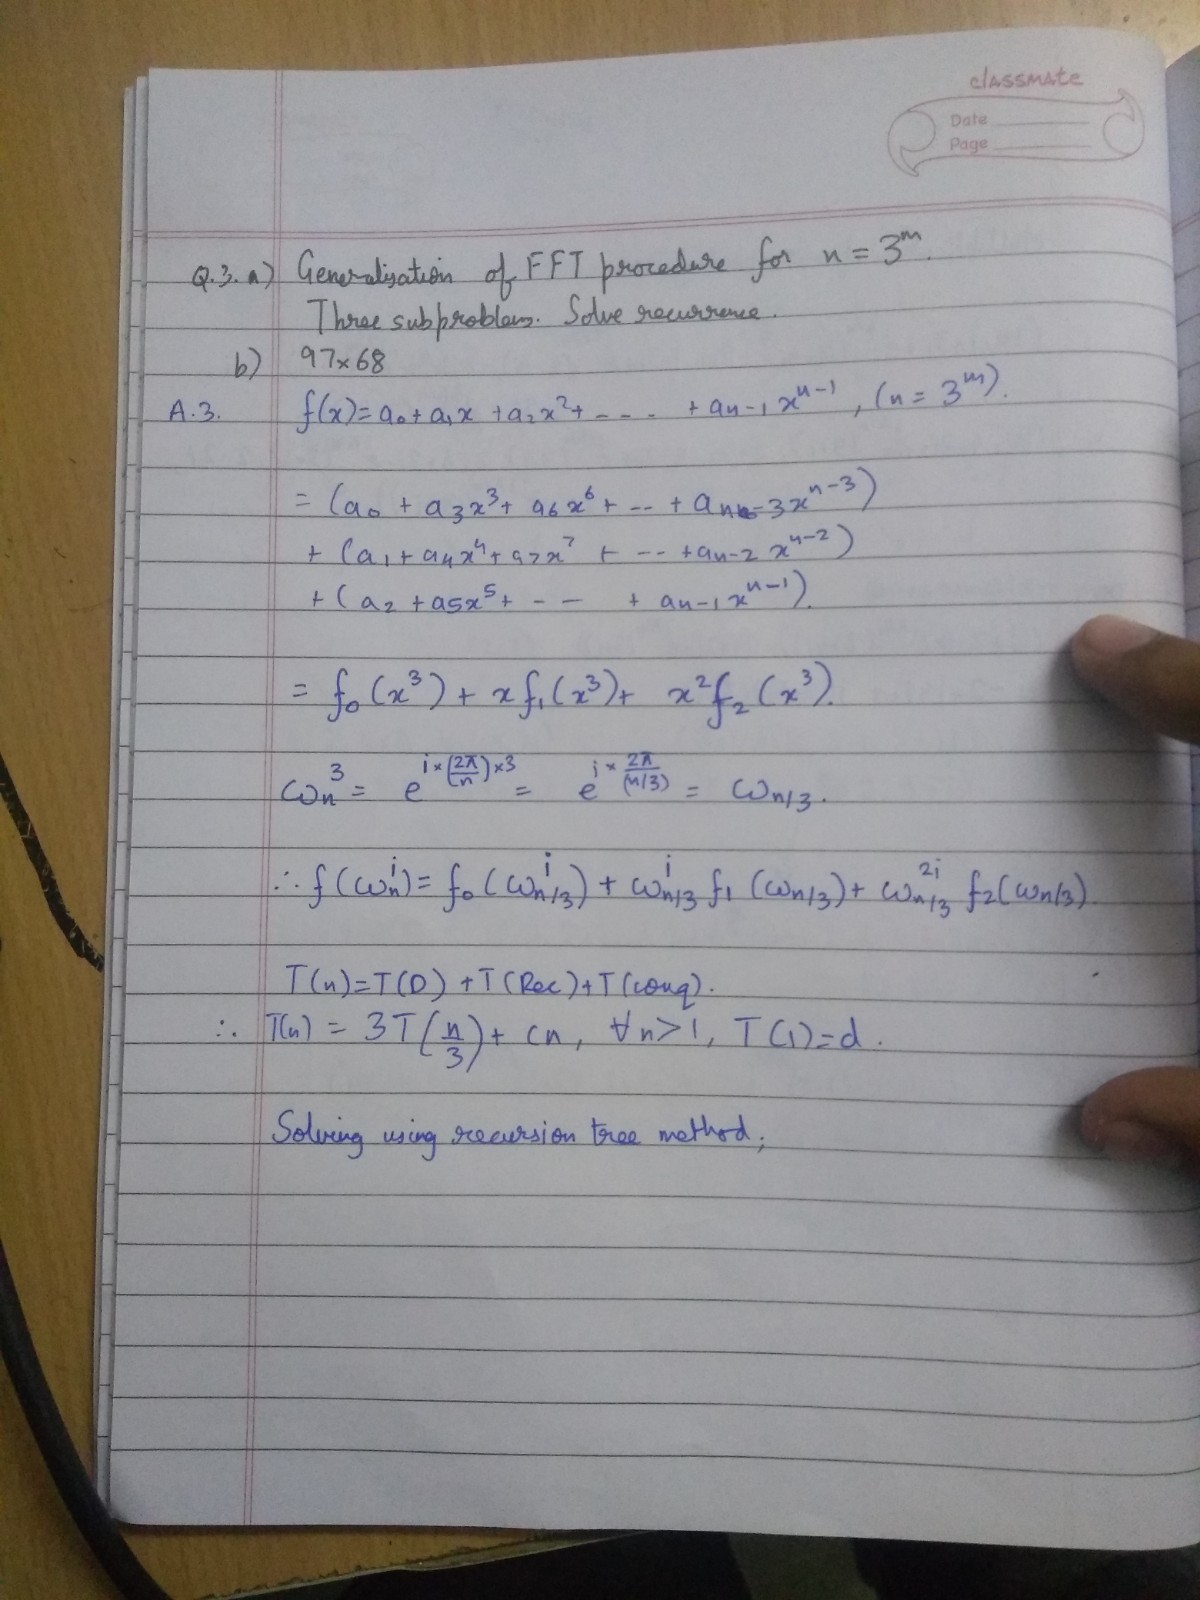 classmate
Date
Page
Q.3. a) Generalisation of FFT procedure for n = 3^m.
Three subproblems. Solve recurrence.
b) 97×68
A.3. f(x) = a₀ + a₁x + a₂x² + - - - - + aₙ₋₁xⁿ⁻¹, (n = 3^m).
= (a₀ + a₃x³ + a₆x⁶ + -- + aₙ₋₃xⁿ⁻³)
+ (a₁ + a₄x⁴ + a₇x⁷ + -- + aₙ₋₂xⁿ⁻²)
+ (a₂ + a₅x⁵ + - - + aₙ₋₁xⁿ⁻¹).
= f₀(x³) + x f₁(x³) + x² f₂(x³).
ωₙ³ = e^(i×(2π/n)×3) = e^(i×2π/(n/3)) = ω_(n/3).
∴ f(ωₙ^i) = f₀(ω_(n/3)^i) + ω_(n/3)^i f₁(ω_(n/3)) + ω_(n/3)^(2i) f₂(ω_(n/3))
T(n) = T(D) + T(Rec) + T(conq).
∴ T(n) = 3T(n/3) + cn, ∀n>1, T(1)=d.
Solving using recursion tree method;